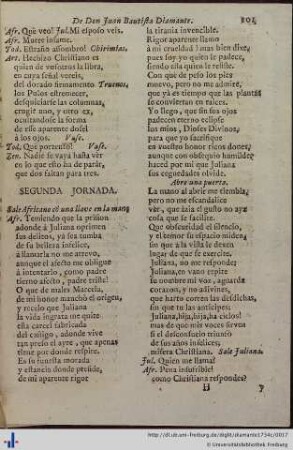 De Don Juan Bautista Diamante.
Afr. Què veo! Jul. Mi esposo veis.
Afr. Muere infame.
Tod. Estraño assombro! Chirimias.
Art. Hechizo Christiano es
quien de vosotros la libra,
en cuya señal vereis,
del dorado firmamento Truenos.
los Polos estremecer,
desquiciarse las columnas,
crugir uno, y otro exe,
ocultandose la forma
de esse aparente dosèl
à los ojos. Vase.
Tod. Què portento! Vase.
Zen. Nadie se vaya hasta vèr
en lo que esto ha de parar,
que dos faltan para tres.
SEGUNDA JORNADA.
Sale Africano el una llave en la mano
Afr. Teniendo que la prision
adonde à Juliana oprimen
sus delitos, yà sea tumba
de su belleza infelice,
à llamarla no me atrevo,
aunque el afecto me obligue
à intentarlo, como padre
tierno afecto, padre triste!
O que de males Marcela,
de mi honor manchò el origen,
y recelo que Juliana
la vida ingrata me quite
esta carcel fabricada
del castigo, adonde vive
tan preso el ayre, que apenas
tiene por donde respire.
Es su funesta morada
y estancia donde preside,
de mi aparente rigor
la tirania invencible.
Rigor aparente llamo
à mi crueldad! mas bien dixe,
pues soy yo quien le padece,
siendo ella quien le resiste.
Con que de pesò los pies
muevo, pero no me admire,
que yà es tiempo que las plantas
se conviertan en raices.
Yo llego, que sin sus ojos
padecen eterno eclipse
los mios, Dioses Divinos,
para que yo sacrifique
en vuestro honor ricos dones,
aunque con obsequio humilde,
haced por mi que Juliana
sus ceguedades olvide.
Abre una puerta.
La mano al abrir me tiembla,
pero no me escandalice
vèr, que àzia el gusto no aya
cosa que se facilite.
Que obscuridad el silencio,
y el temor su espacio miden,
sin que à la vista le dexen
lugar de que se exercite.
Juliana, no me responde:
Juliana, en vano repite
su nombre mi voz, aguarde
corazon, y no adivines,
que harto corren las desdichas,
sin que tu las anticipes.
Juliana, hija, hija, ha cielos!
mas de què mis voces sirven
si el desconsuelo triunfò
de sus años infelices;
misera Christiana. Sale Juliana.
Jul. Quien me llama?
Afr. Pena insufrible!
como Christiana respondes?
H
y
http://dl.ub.uni-freiburg.de/diglit/diamante1734c/0017
© Universitätsbibliothek Freiburg